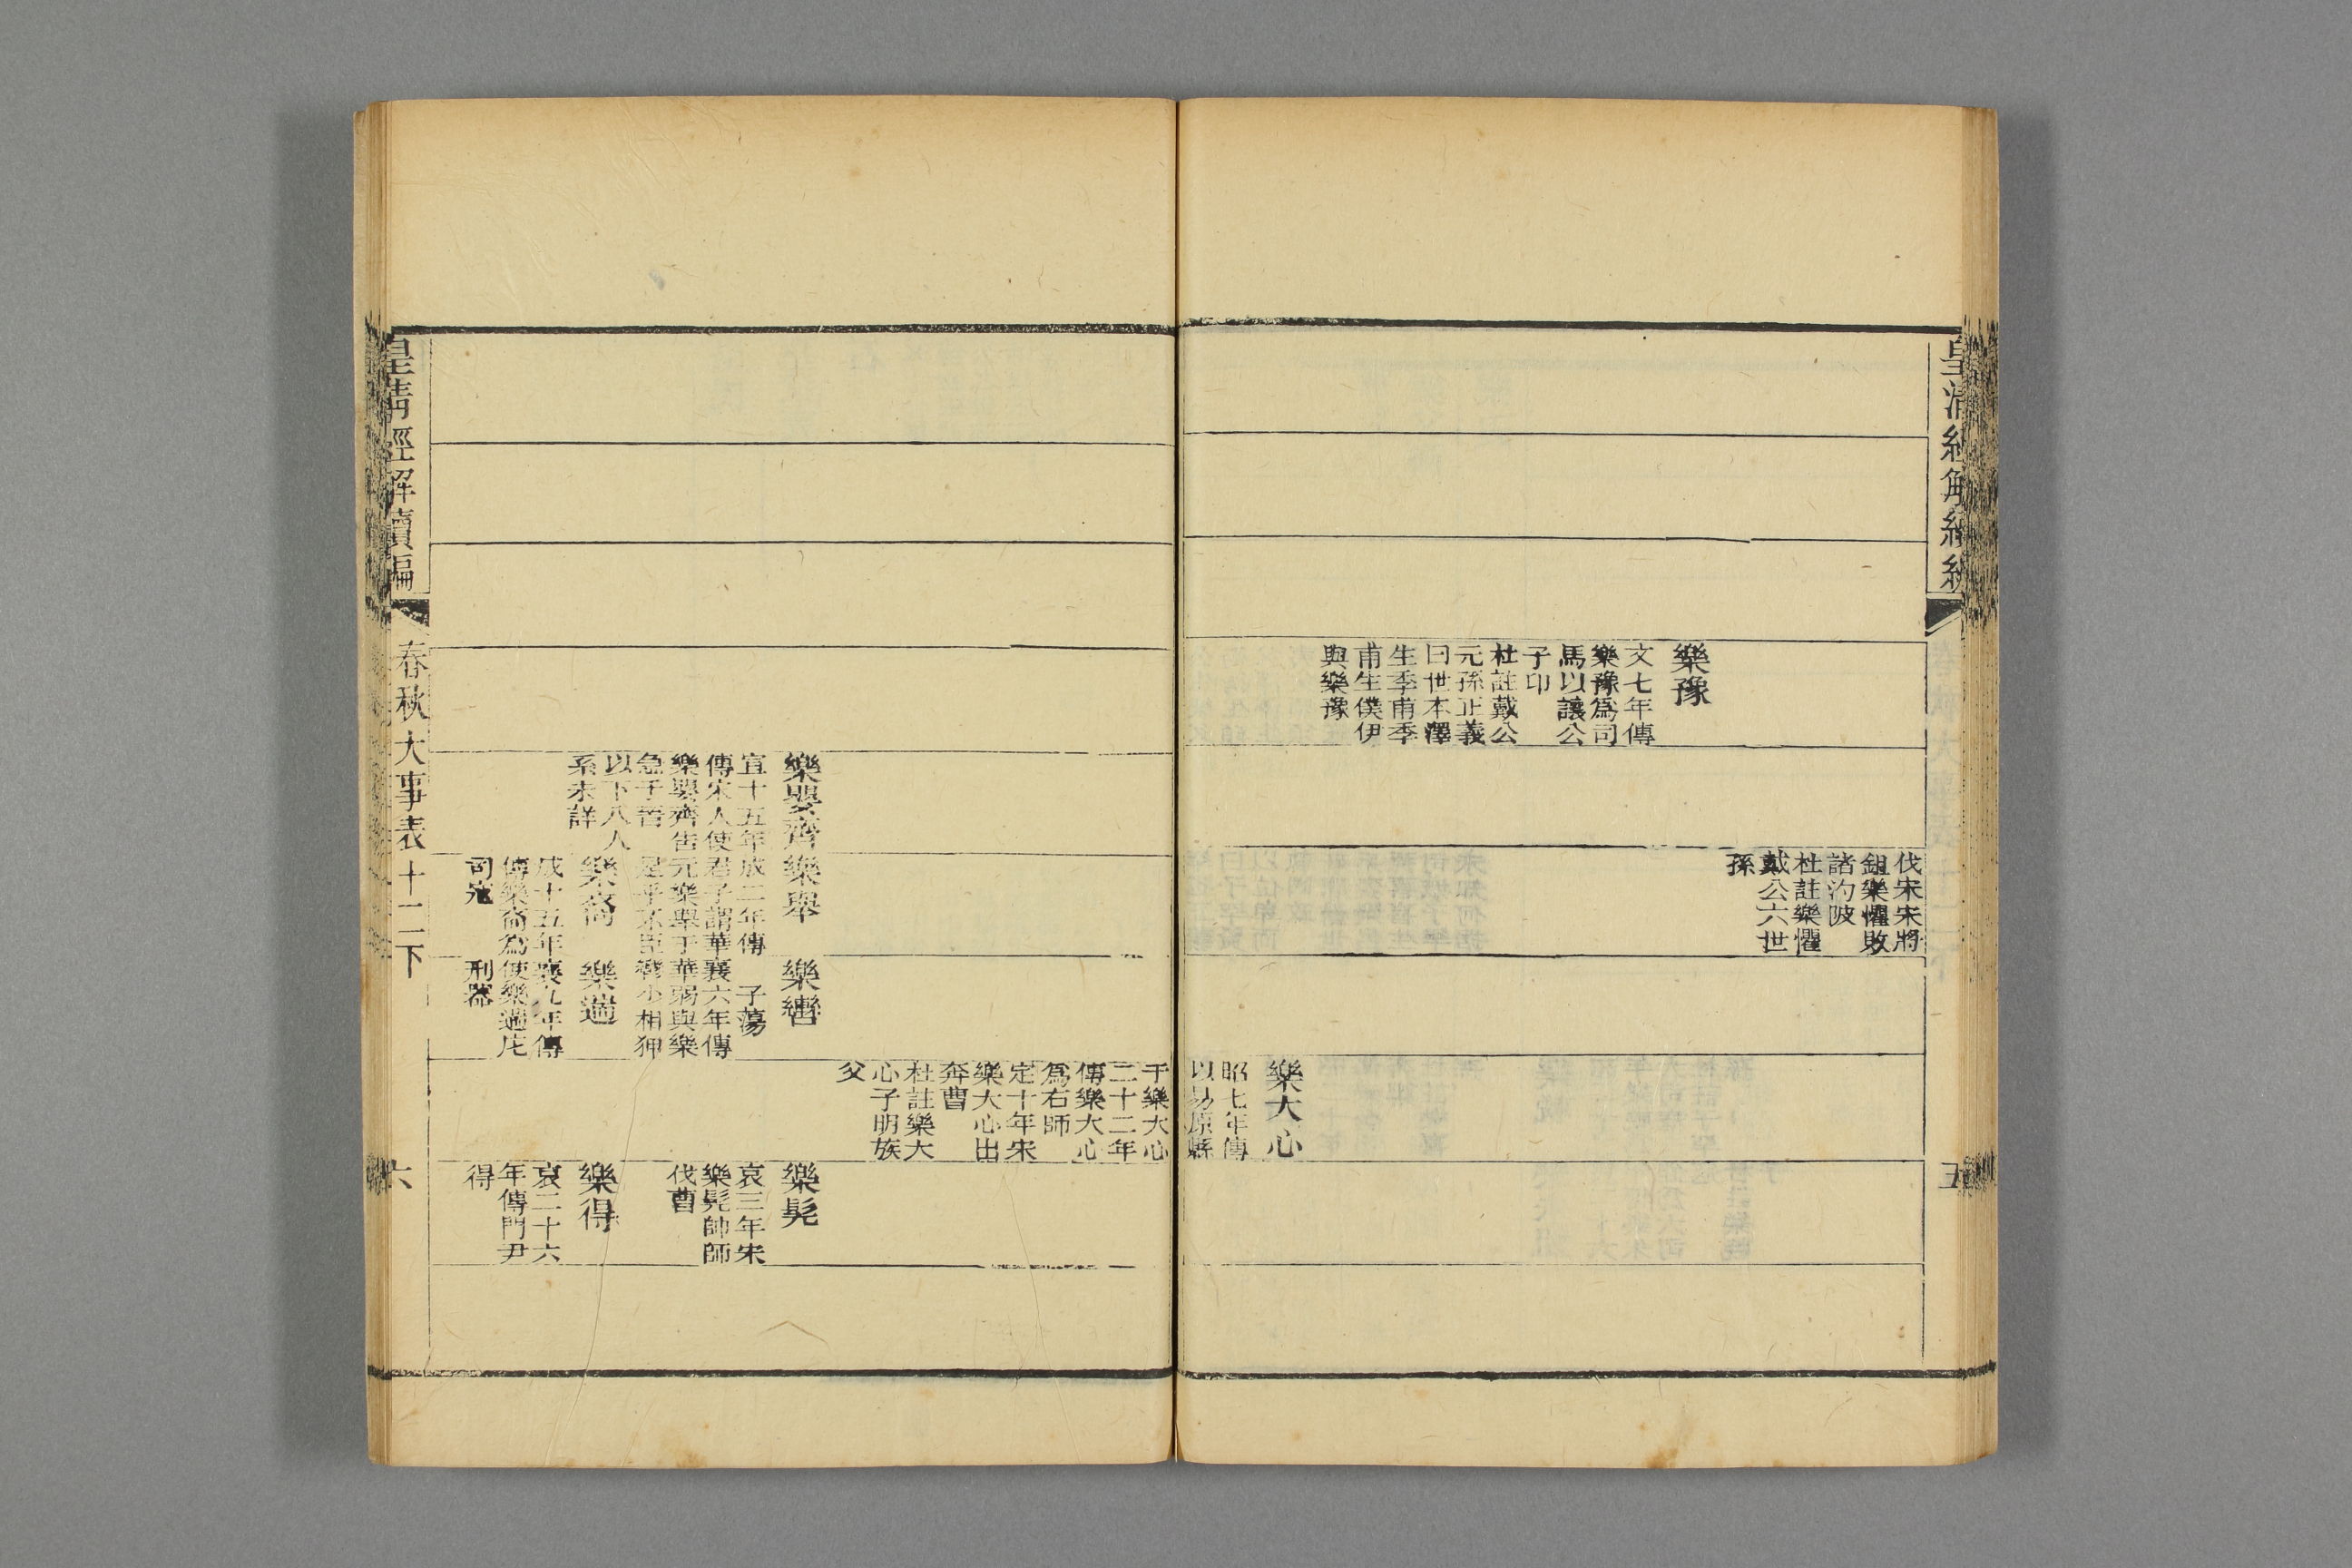 皇清經解續編
伐宋宋將
鉏樂懼敗
諸汋陂
杜註樂懼
戴公六世
孫
樂豫
文七年傳
樂豫爲司
馬以讓公
子卬
杜註戴公
元孫正義
曰世本澤
生季甫季
甫生僕伊
與樂豫
樂大心
昭七年傳
以易原縣
于樂大心
二十二年
傳樂大心
爲右師
定十年宋
樂大心出
奔曹
杜註樂大
心子明族
父
樂嬰齊
宣十五年
傳宋人使
樂嬰齊告
急于晉
以下八人
系未詳
樂舉
成二年傳
君子謂華
元樂舉于
是乎不臣
樂裔
成十五年
傳樂裔爲
司寇
樂轡
子蕩
襄六年傳
華弱與樂
轡少相狎
樂遄
襄九年傳
使樂遄庀
刑器
樂髡
哀三年宋
樂髡帥師
伐曹
樂得
哀二十六
年傳門尹
得
皇清經解續編
春秋大事表十二下
六